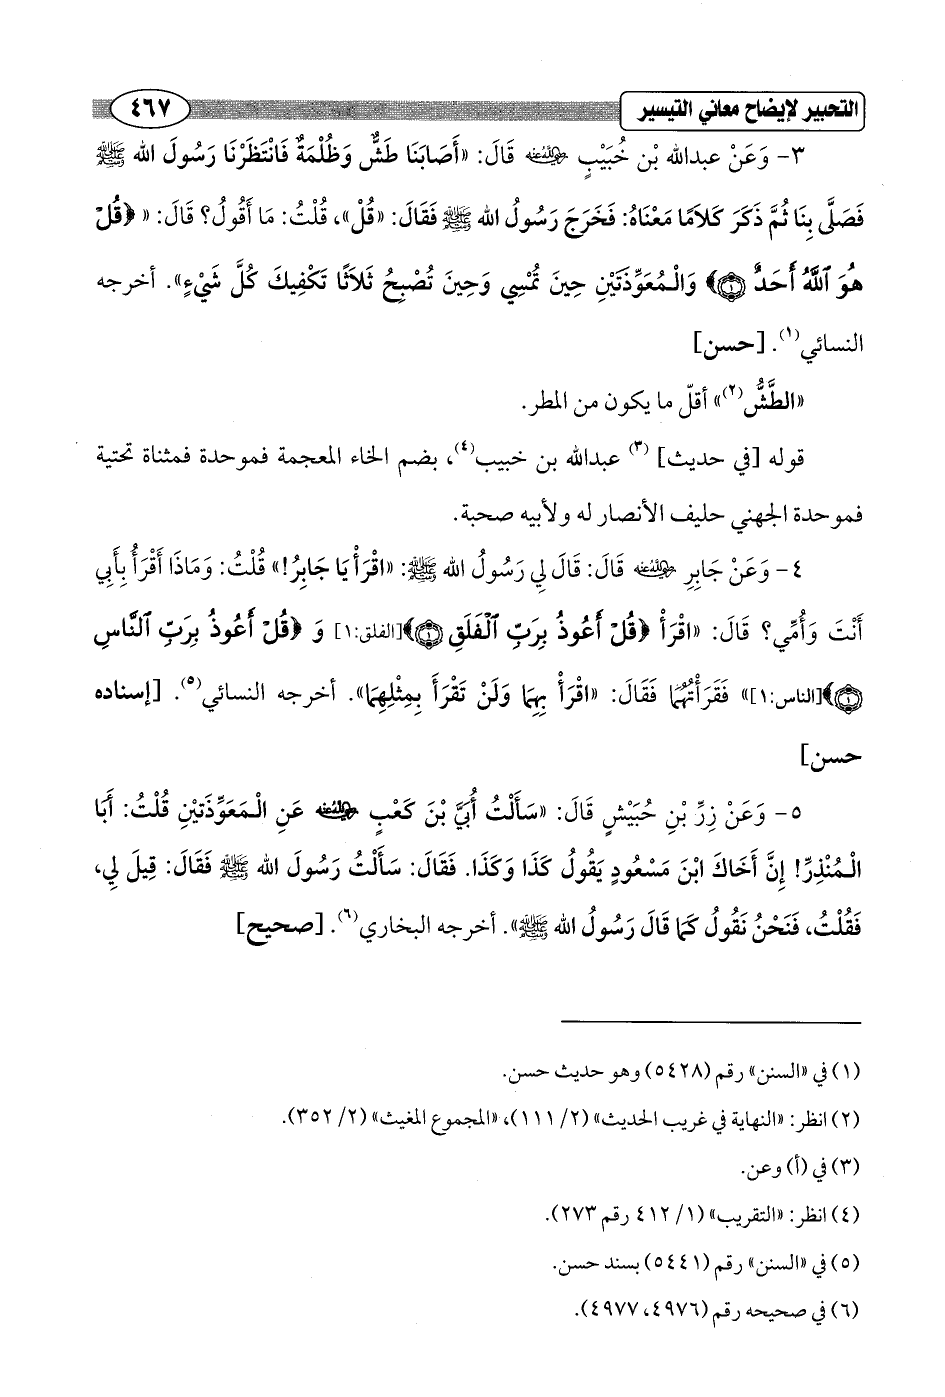 التحبير لإيضاح معاني التيسير
٤٦٧
٣- وَعَنْ عبدالله بْن خُبَيْبٍ رضي الله عنه قَالَ: «أَصَابَنَا طَشٌّ وَظُلْمَةٌ فَانْتَظَرْنَا رَسُولَ الله ﷺ
فَصَلَّى بِنَا ثُمَّ ذَكَرَ كَلَامًا مَعْنَاهُ: فَخَرَجَ رَسُولُ الله ﷺ فَقَالَ: «قُلْ»، قُلْتُ: مَا أَقُولُ؟ قَالَ: « ﴿قُلْ
هُوَ ٱللَّهُ أَحَدٌ ۝١﴾ وَالْمُعَوِّذَتَيْنِ حِينَ تُمْسِي وَحِينَ تُصْبِحُ ثَلَاثًا تَكْفِيكَ كُلَّ شَيْءٍ». أخرجه
النسائي(١). [حسن]
«الطَّشُّ(٢)» أقلّ ما يكون من المطر.
قوله [في حديث](٣) عبدالله بن خبيب(٤)، بضم الخاء المعجمة فموحدة فمثناة تحتية
فموحدة الجهني حليف الأنصار له ولأبيه صحبة.
٤- وَعَنْ جَابِرٍ رضي الله عنه قَالَ: قَالَ لِي رَسُولُ الله ﷺ: «اقْرَأْ يَا جَابِرُ!» قُلْتُ: وَمَاذَا أَقْرَأُ بِأَبِي
أَنْتَ وَأُمِّي؟ قَالَ: «اقْرَأْ ﴿قُلْ أَعُوذُ بِرَبِّ ٱلْفَلَقِ ۝١﴾[الفلق:١] وَ ﴿قُلْ أَعُوذُ بِرَبِّ ٱلنَّاسِ
۝١﴾[الناس:١]» فَقَرَأْتُهُمَا فَقَالَ: «اقْرَأْ بِهِمَا وَلَنْ تَقْرَأَ بِمِثْلِهِمَا». أخرجه النسائي(٥). [إسناده
حسن]
٥- وَعَنْ زِرِّ بْنِ حُبَيْشٍ قَالَ: «سَأَلْتُ أُبَيَّ بْنَ كَعْبٍ رضي الله عنه عَنِ الْمَعَوِّذَتَيْنِ قُلْتُ: أَبَا
الْمُنْذِرِ! إِنَّ أَخَاكَ ابْنَ مَسْعُودٍ يَقُولُ كَذَا وَكَذَا. فَقَالَ: سَأَلْتُ رَسُولَ الله ﷺ فَقَالَ: قِيلَ لِي،
فَقُلْتُ، فَنَحْنُ نَقُولُ كَمَا قَالَ رَسُولُ الله ﷺ». أخرجه البخاري(٦). [صحيح]
(١) في «السنن» رقم (٥٤٢٨) وهو حديث حسن.
(٢) انظر: «النهاية في غريب الحديث» (٢/ ١١١)، «المجموع المغيث» (٢/ ٣٥٢).
(٣) في (أ) وعن.
(٤) انظر: «التقريب» (١/ ٤١٢ رقم ٢٧٣).
(٥) في «السنن» رقم (٥٤٤١) بسند حسن.
(٦) في صحيحه رقم (٤٩٧٦، ٤٩٧٧).